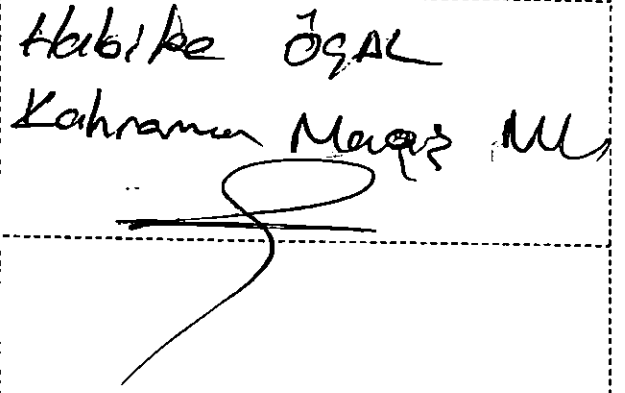 Habibe ÖÇAL
Kahraman Maraş MV